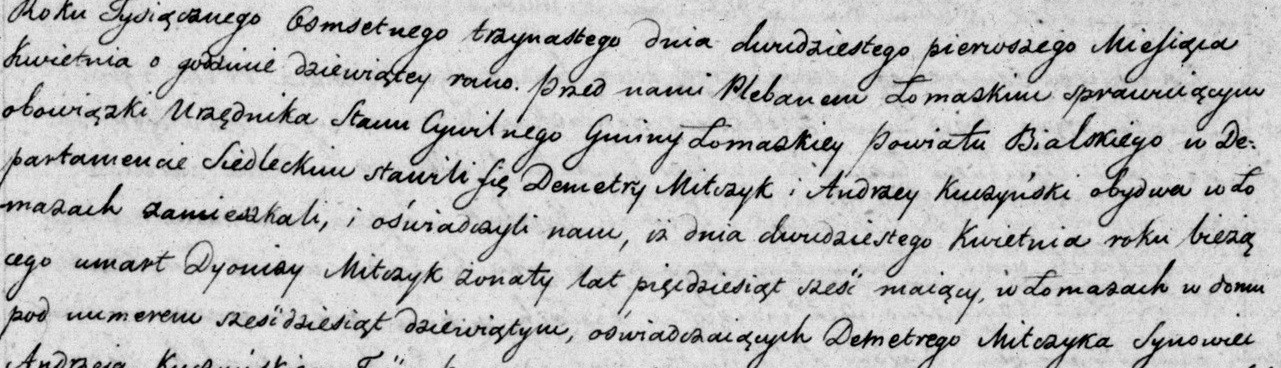 Roku Tysiącznego Osmsetnego trzynastego dnia dwudziestego pierwszego Miesiąca
Kwietnia o godzinie dziewiątey rano. Przed nami Plebanem Łomaskim sprawuiącym
obowiązki Urzędnika Stanu Cywilnego Gminy Łomaskiey Powiatu Bialskiego w De-
partamencie Siedleckim stawili się Demetry Mitczyk i Andrzey Kuczyński obydwa w Ło
mazach zamieszkali, i oświadczyli nam, iż dnia dwudziestego Kwietnia roku bieżą
cego umarł Dyonizy Mitczyk żonaty lat pięćdziesiąt sześć maiący, w Łomazach w domu
pod numerem sześćdziesiąt dziewiątym, oświadczaiących Demetrego Mitczyka Synowiec
Andrzeja